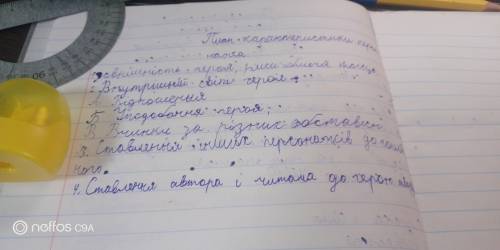 План характеристики
1. Зовнішність героя, риси обличчя
2. Внутрішній світ героя
А.
Б. Уподобання героя;
В. Вчинки за різних обставин
3. Ставлення інших персонажів до
ного.
4. Ставлення автора і читача до героя
noffos C9A